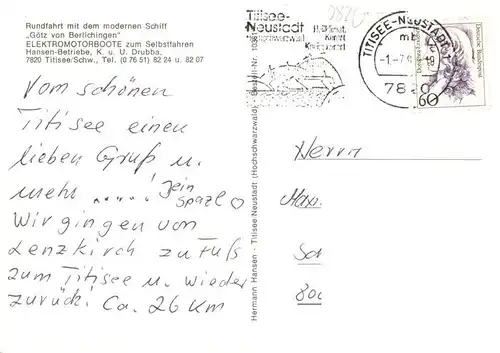 Rundfahrt mit dem modernen Schiff
„Götz von Berlichingen"
ELEKTROMOTORBOOTE zum Selbstfahren
Hansen-Betriebe, K. u. U. Drubba,
7820 Titisee/Schw., Tel. (0 76 51) 82 24 u. 82 07
Vom schönen
Titisee einen
lieben Gruß u.
mehr .....! Dein
Spazl ♡
Wir gingen von
Lenzkirch zu Fuß
zum Titisee u. wieder
zurück. Ca. 26 Km
Hermann Hansen - Titisee-Neustadt (Hochschwarzwald) - Bestell-Nr.
Titisee-
Neustadt
Hochschwarzwald
Heilklimat.
Kurort
Kneippkurort
TITISEE-NEUSTADT 1
mb
-1.-7.
7820
Deutsche Bundespost
60
Herrn